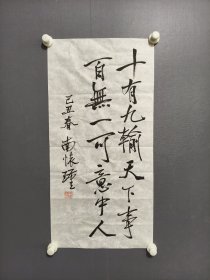 十有九輸天下事
百無一可意中人
己丑春 南懷瑾